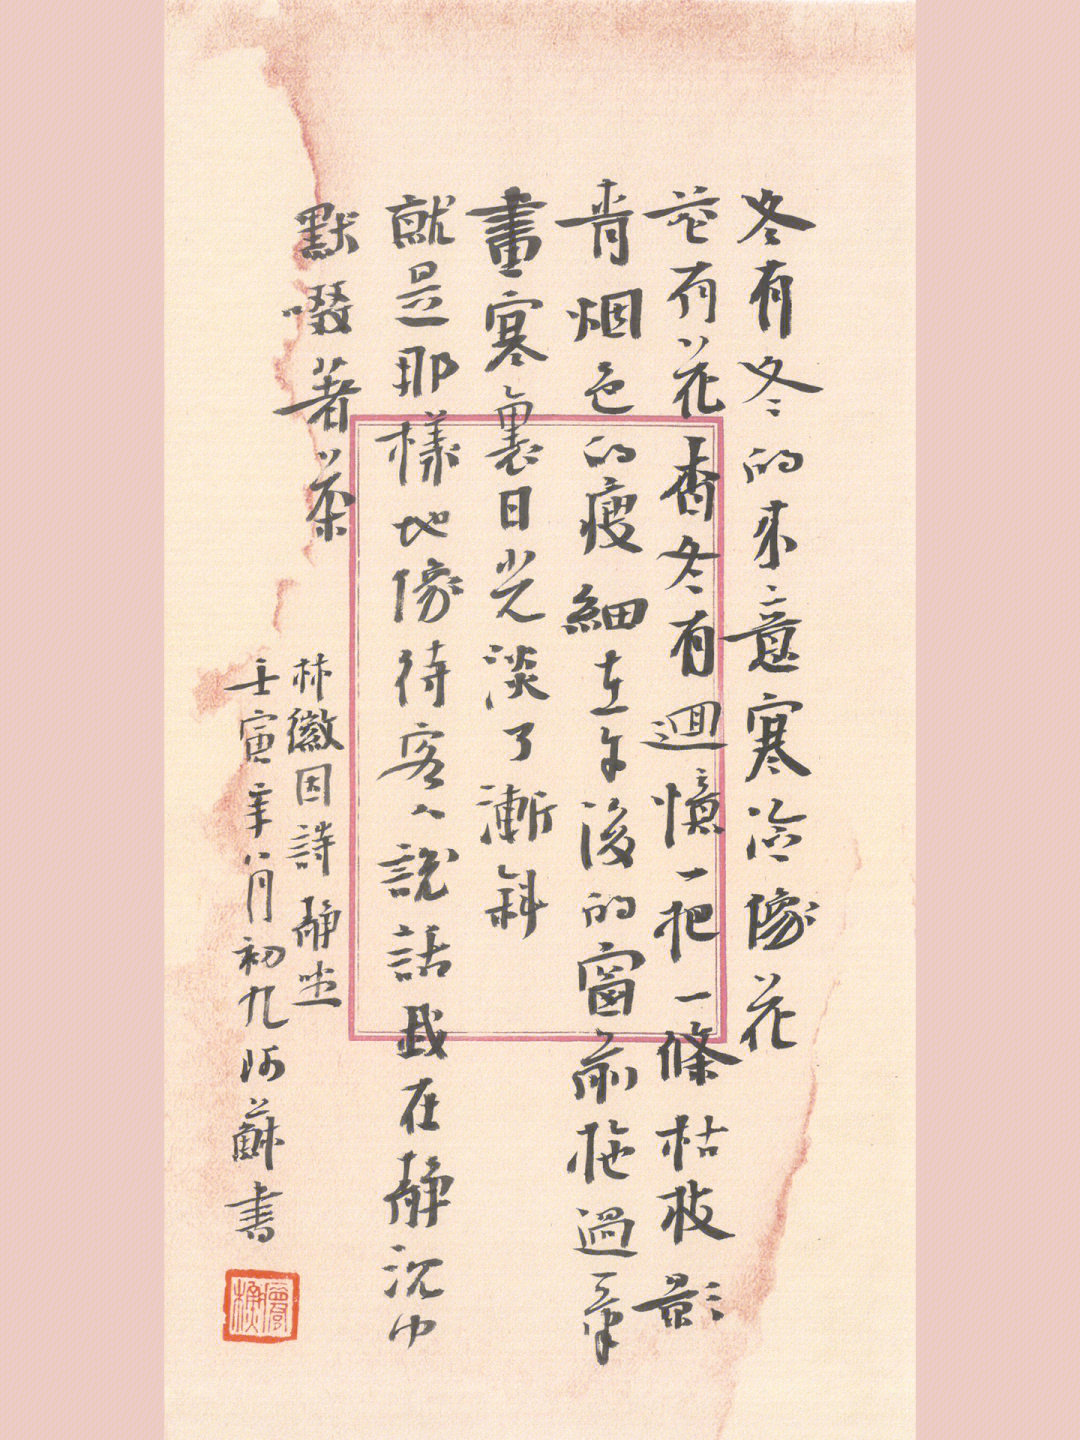 冬有冬的来意寒冷像花
花有花香冬有迴憶一把一條枯枝影
青烟色的瘦細在午後的窗前拖過一筆
畫寒裏日光淡了漸斜
就是那樣地像待客人說話我在靜沉中
默啜著茶
林徽因詩 靜坐
壬寅年八月初九阿蘇書